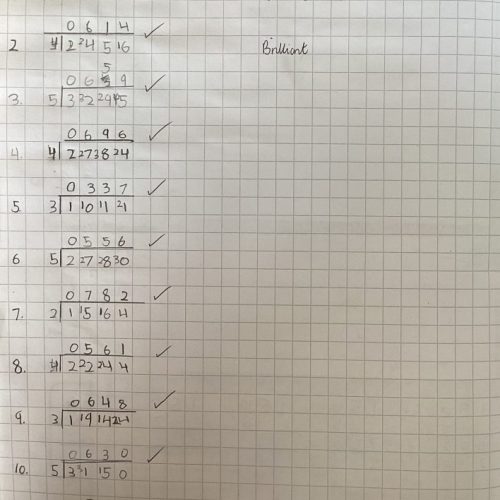 0 6 1 4 ✓
2 4|2 ²4 5 ¹6
Brilliant
5
0 6 9 ✓
3. 5|3 ³2 ²9 ⁴5
0 6 9 6 ✓
4. 4|2 ²7 ³8 ²4
0 3 3 7 ✓
5. 3|1 ¹0 ¹1 ²1
0 5 5 6 ✓
6 5|2 ²7 ²8 ³0
0 7 8 2 ✓
7. 2|1 ¹5 ¹6 4
0 5 6 1 ✓
8. 4|2 ²2 ²4 4
0 6 4 8 ✓
9. 3|1 ¹9 ¹4 ²4
0 6 3 0 ✓
10. 5|3 ³1 ¹5 0